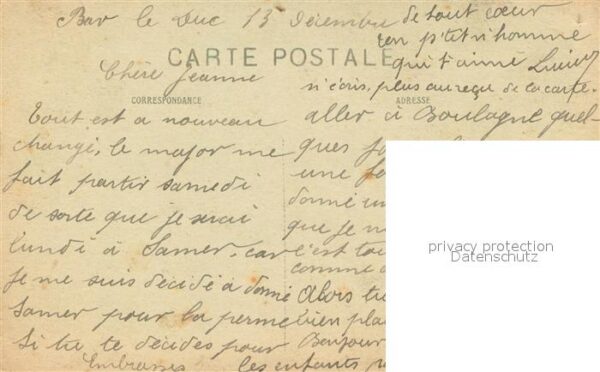 Bar le Duc 13 Décembre
CARTE POSTALE
Chère Jeanne
CORRESPONDANCE
Tout est a nouveau
changé, le major me
fait partir samedi
de sorte que je serai
lundi à Samer, car
je me suis décidé à donné
Samer pour la perme
Si tu te décides pour
aller à Boulogne quel-
ques
une
donné un
que je
c'est
comme
Alors tu
bien
Bonjour
Embrasses les enfants
de tout cœur
ton p'tit n'homme
qui t'aime
n'écris plus au reçu de la carte.
ADRESSE
privacy protection
Datenschutz